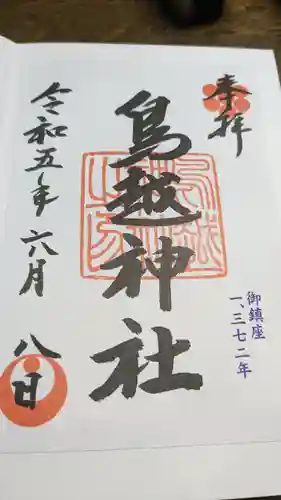 奉拝
鳥越神社
御鎮座
一、三七二年
令和五年六月八日